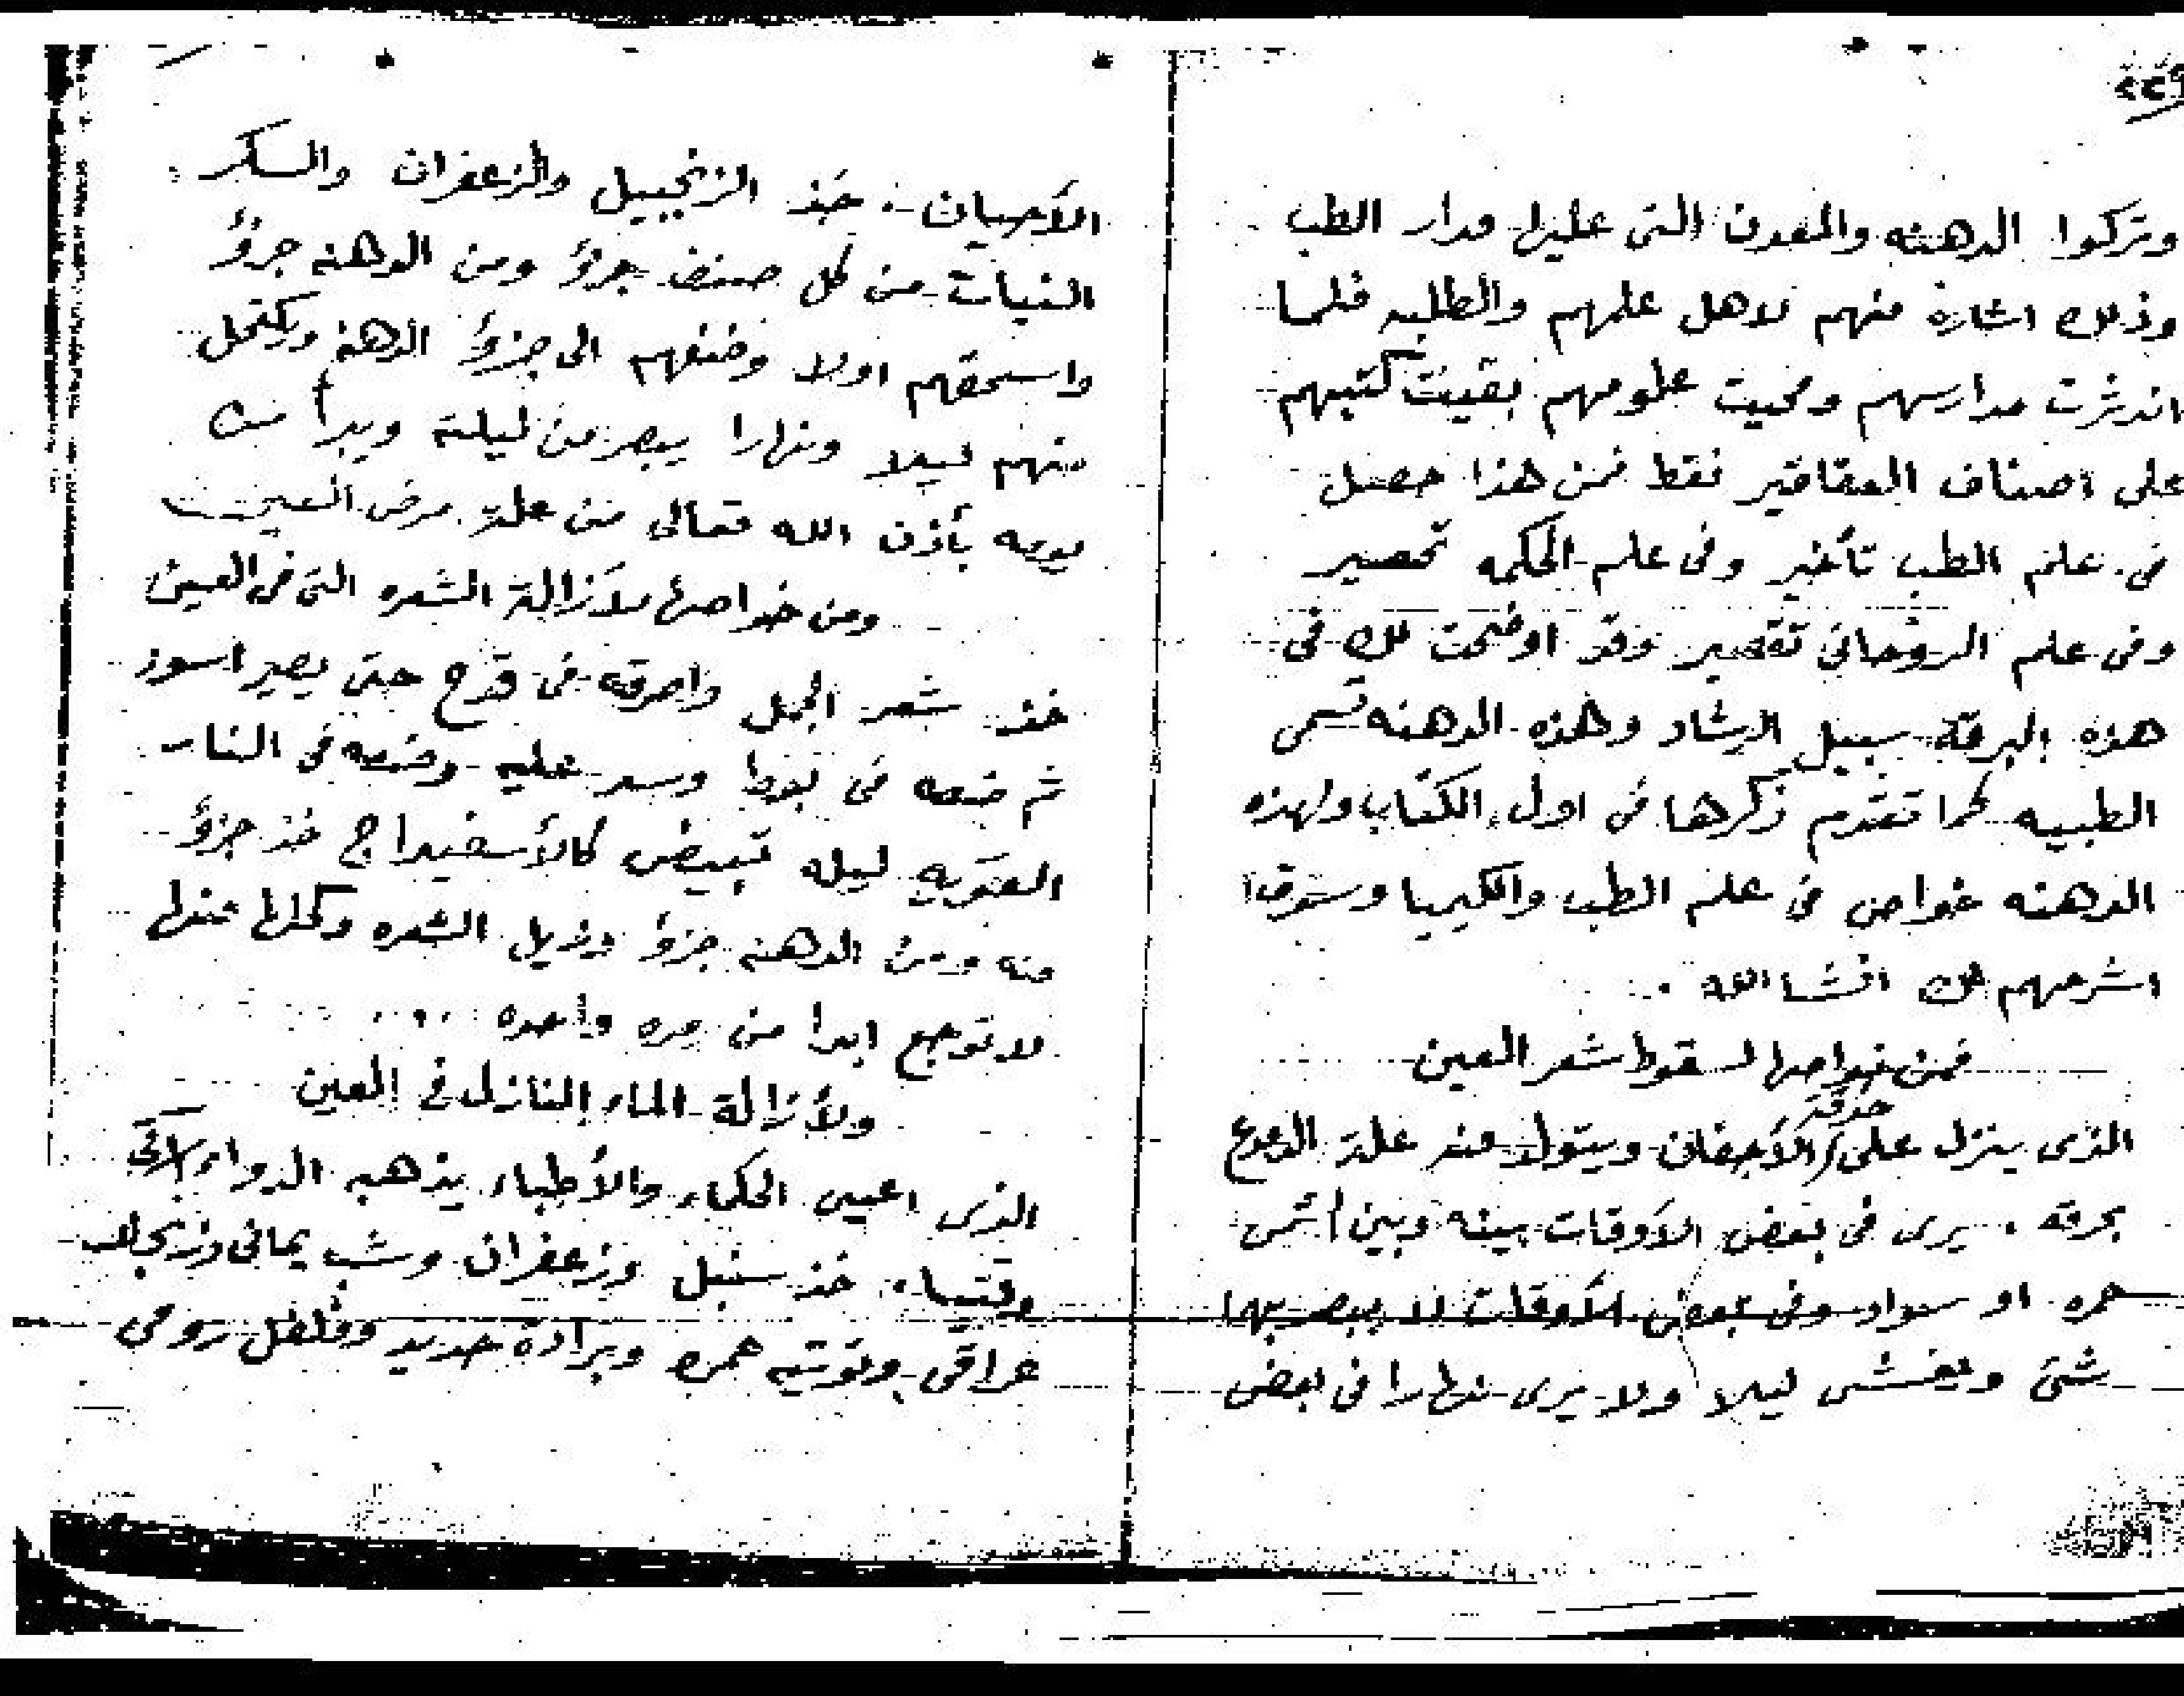 ٢٢٩
وتركوا الدهنه والمعدن التى عليها مدار الطب
وذلك اشارة منهم لاهل علمهم والطلبه فلما
اندثرت مدارسهم ومحيت علومهم بقيت كتبهم
على اصناف العقاقير فقط فمن هذا حصل
فى علم الطب تأخير وفى علم الحكمه تحصير
وفى علم الروحانى تقصير وقد اوضحت لك فى
هذه البرقة سبيل الارشاد وهذه الدهنه تسمى
الطبيه كما تقدم ذكرها فى اول الكتاب ولهذه
الدهنه خواص فى علم الطب والكيميا وسوف
اشرحهم لك انشا الله .
فمن خواصها لسقوط شعر العين
الذى ينزل على حدقة الأجفان ويتولد منه علة الدموع
بحرقه . يرى فى بعض الأوقات بينه وبين
حمره او سواد وفى بعض الأوقات لا يبصر بهما
شئ ويغشى ليلا ولا يرى نهارا فى بعض
الأحيان . خذ الزنجبيل والزعفران والسكر
النبات من كل صنف جزؤ ومن الدهنه جزؤ
واسحقهم اولا وضفهم الى جزؤ الدهنه ويكتحل
منهم ليلا ونهارا يبصر من ليلته ويبرأ من
يومه بأذن الله تعالى من علة مرض العين
ومن خواصها لأزالة الشعره التى فى العين
خذ شعر الجمل واحرقه فى قدح حتى يصير اسود
ثم ضعه فى بوط وسد عليه وضعه فى النار
القويه ليله تبيض كالأسفيداج خذ جزؤ
منه ومن الدهنه جزؤ وزيل الشعره وكحلها عندها
لا توجع ابدا من مره واحده ...
ولأزالة الماء النازل فى العين
الذى اعيى الحكماء والأطباء يذهبه الدواء
وقتيا . خذ سنبل وزعفران وشب يمانى وزنجار
عراقى وتوتيه حمره وبرادة حديد وفلفل رومى